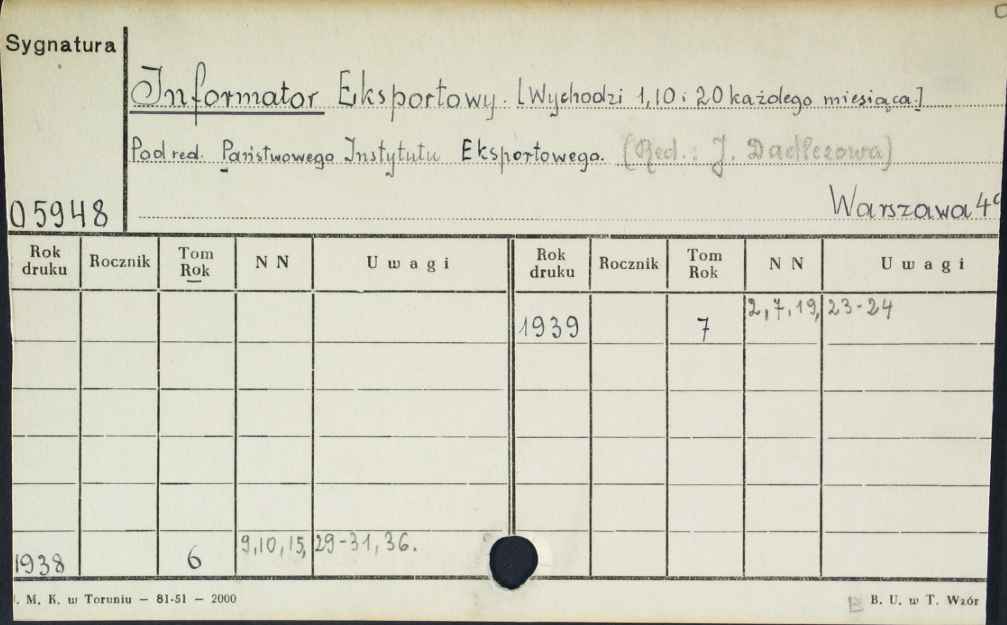 Sygnatura
Informator Eksportowy. [Wychodzi 1, 10 i 20 każdego miesiąca.]
Pod red. Państwowego Instytutu Eksportowego. (Red.: J. Dadlezowa)
05948
Warszawa 4°
Rok druku Rocznik Tom Rok N N Uwagi Rok druku Rocznik Tom Rok N N Uwagi
1939 7 2, 7, 19, 23-24
1938 6 9, 10, 15, 29-31, 36.
. M. K. w Toruniu — 81-51 — 2000
B. U. w T. Wzór